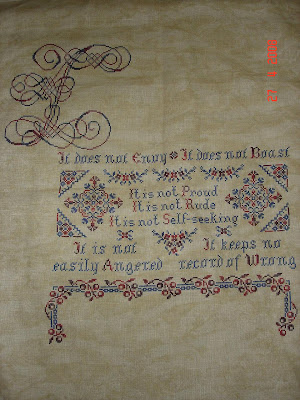 It does not Envy It does not Boast
It is not Proud
It is not Rude
It is not Self-seeking
It is not It keeps no
easily Angered record of Wrong